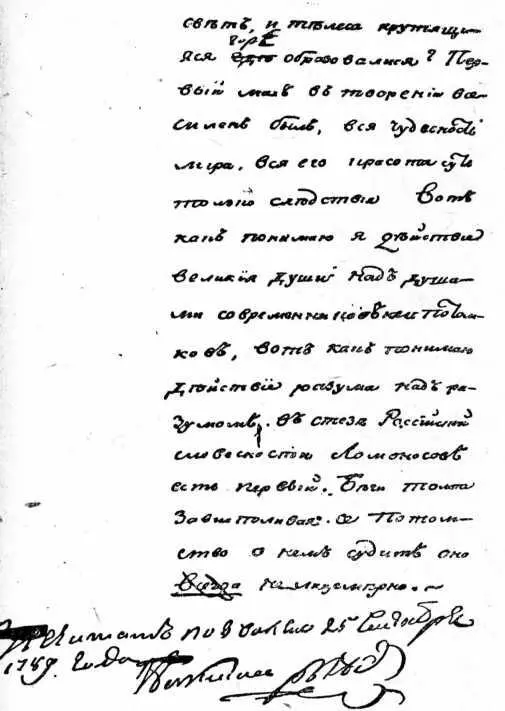 свѣтъ, и тѣлеса крутящи-
горѣ
яся едѣ образовалися? Пер-
вый махъ въ творенiи все-
силенъ былъ, вся чудесность
мира, вся его красота суть
только слѣдствiя Вотъ
какъ понимаю я дѣйствiе
великiя души надъ душа-
ми современниковъ или потом-
ковъ, вотъ какъ понимаю
дѣйствiе разума надъ ра-
зумомъ. Въ стезѣ Россiйской
словесности Ломоносовъ
есть первый. Бѣги толпа
завистливая: се потом-
ство о немъ судитъ оно
всегда нелицемѣрно.
Печатать позволено 25 Сентября
1789. года